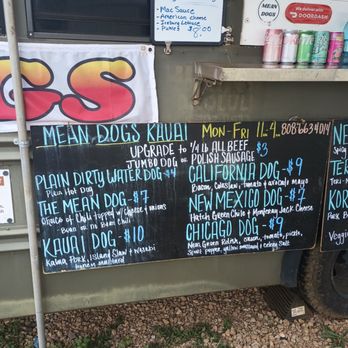 • Mac Sauce
• American cheese
• Iceburg Lettuce
MEAN DOGS
We deliver with
DOORDASH
GS
MEAN DOGS KAUAI MON-FRI 11-4 808 663 4014
UPGRADE to 1/4 lb ALL BEEF $3
JUMBO DOG or POLISH SAUSAGE
PLAIN DIRTY WATER DOG $4
Plain Hot Dog
THE MEAN DOG - $7
Choice of Chili topped w/ Cheese + onions
Bean or no Bean Chili
KAUAI DOG - $10
Kalua Pork, Island Slaw + Wasabi
mustard
CALIFORNIA DOG - $9
Bacon, Coleslaw, tomato + avocado mayo
NEW MEXICO DOG - $7
Hatch Green Chile + Monterey Jack Cheese
CHICAGO DOG - $9
Neon Green Relish, onion, tomato, pickle,
Sport pepper, yellow mustard + celery Salt